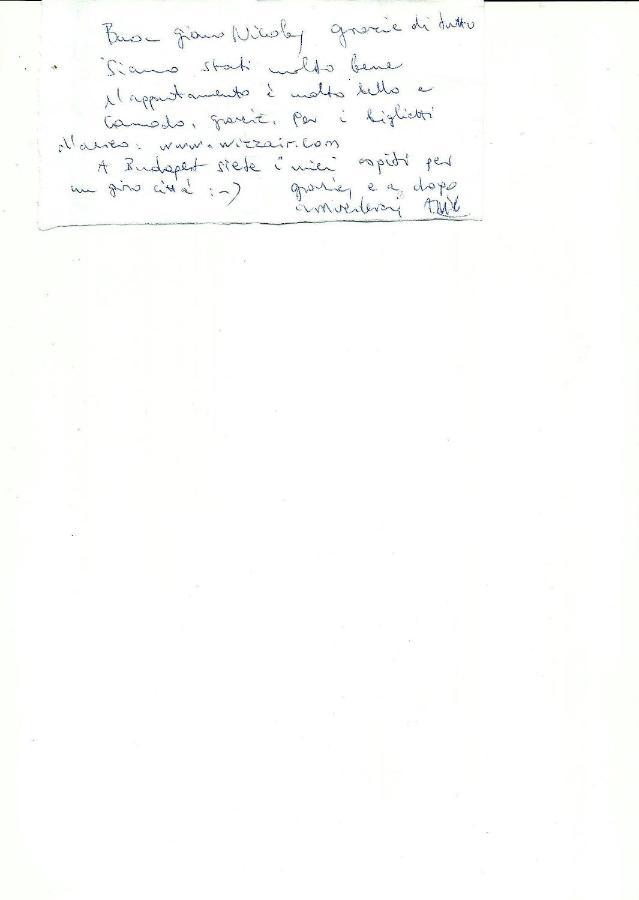 Buon giorno Nicolay grazie di tutto
Siamo stati molto bene
L'appartamento è molto bello e
Comodo, grazie. Per i biglietti
d'aereo: www.wizzair.com
A Budapest siete i miei ospiti per
un giro città :-) grazie, e a dopo
arrivederci